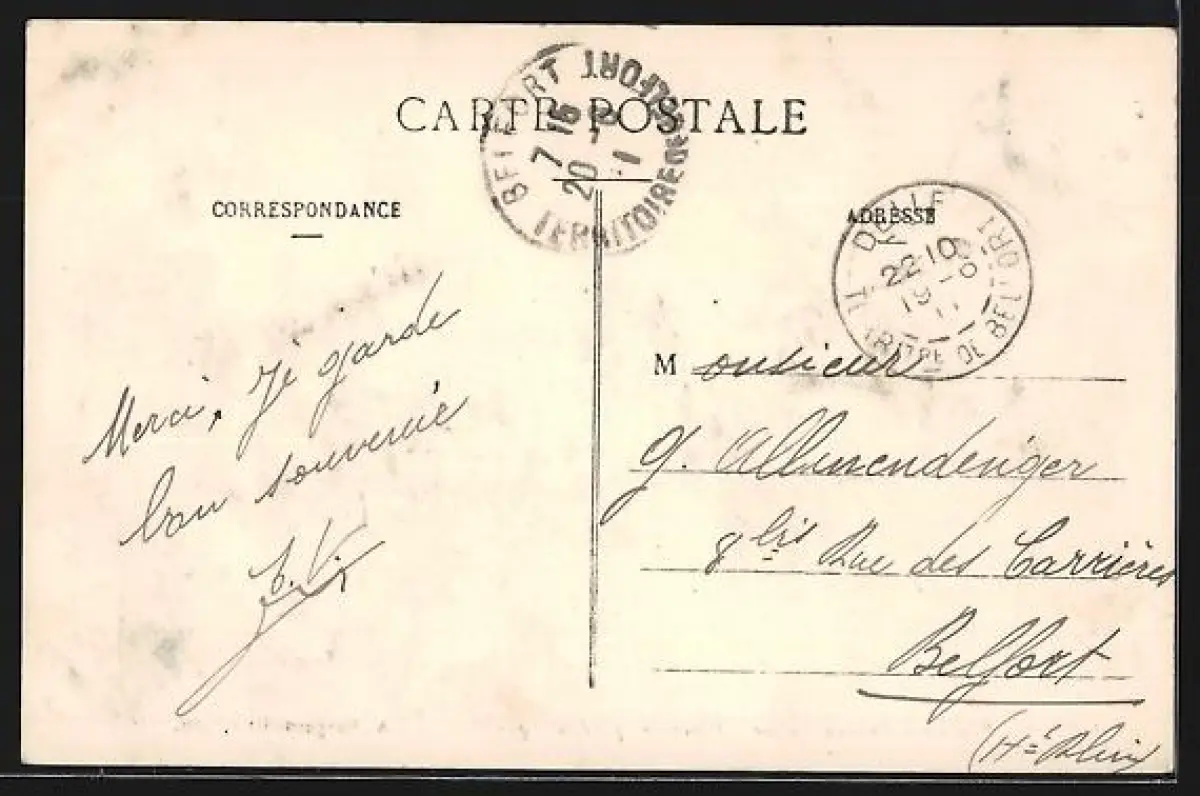 CARTE POSTALE
BELFORT TERRITOIRE DE BELFORT
7 15
20
CORRESPONDANCE
ADRESSE
DELLE
22 10
19
TERRITRE DE BELFORT
Merci, je garde
bon souvenir
Monsieur
G. Allmendinger
8 bis Rue des Carrières
Belfort
(Ht Rhin)